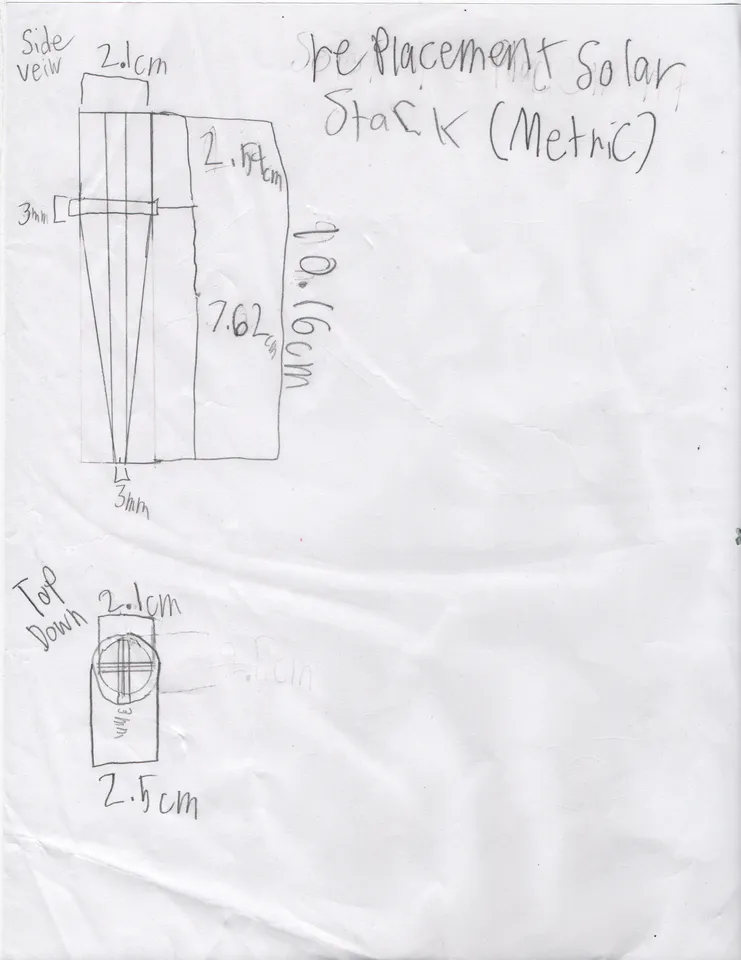 Side
veiw
2.1cm
RePlacement Solar
Stack (Metric)
2.54cm
3mm
10.16cm
7.62cm
3mm
Top
Down
2.1cm
3mm
2.5cm